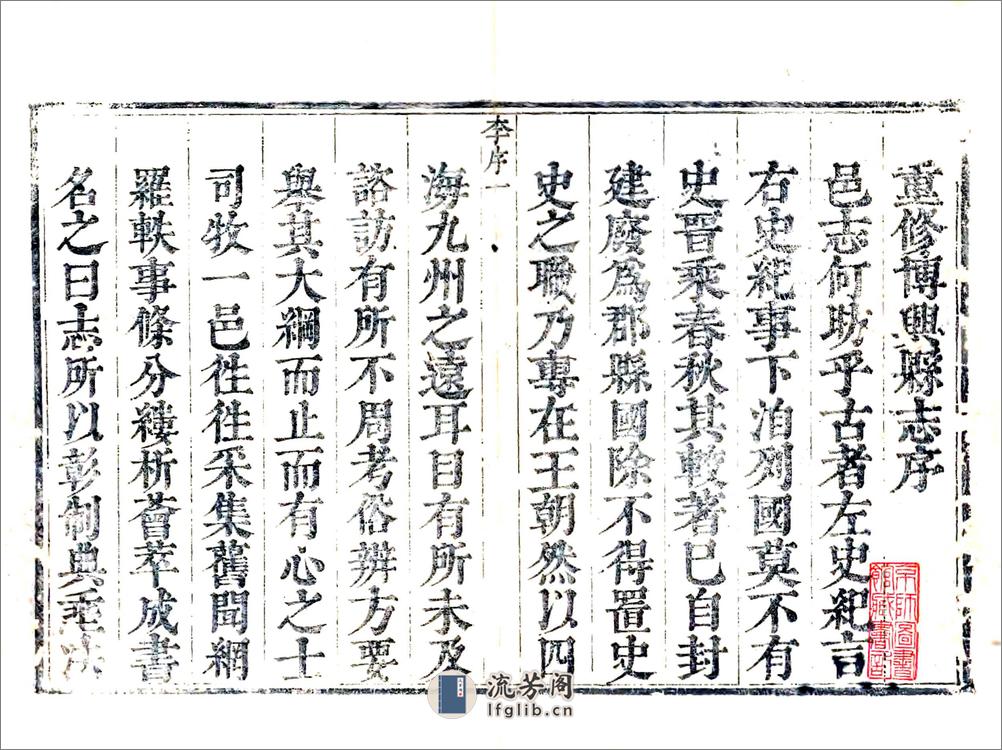 重修博興縣志序
邑志何昉乎古者左史紀言
右史紀事下洎列國莫不有
史晉乘春秋其較著已自封
建廢為郡縣國除不得置史
史之職乃專在王朝然以四
李序一
海九州之遠耳目有所未及
諮訪有所不周考俗辨方要
舉其大綱而止而有心之士
司牧一邑徃徃采集舊聞網
羅軼事條分縷析薈萃成書
名之曰志所以彰制典垂法
京師圖書
館藏書記
流芳阁
lfglib.cn